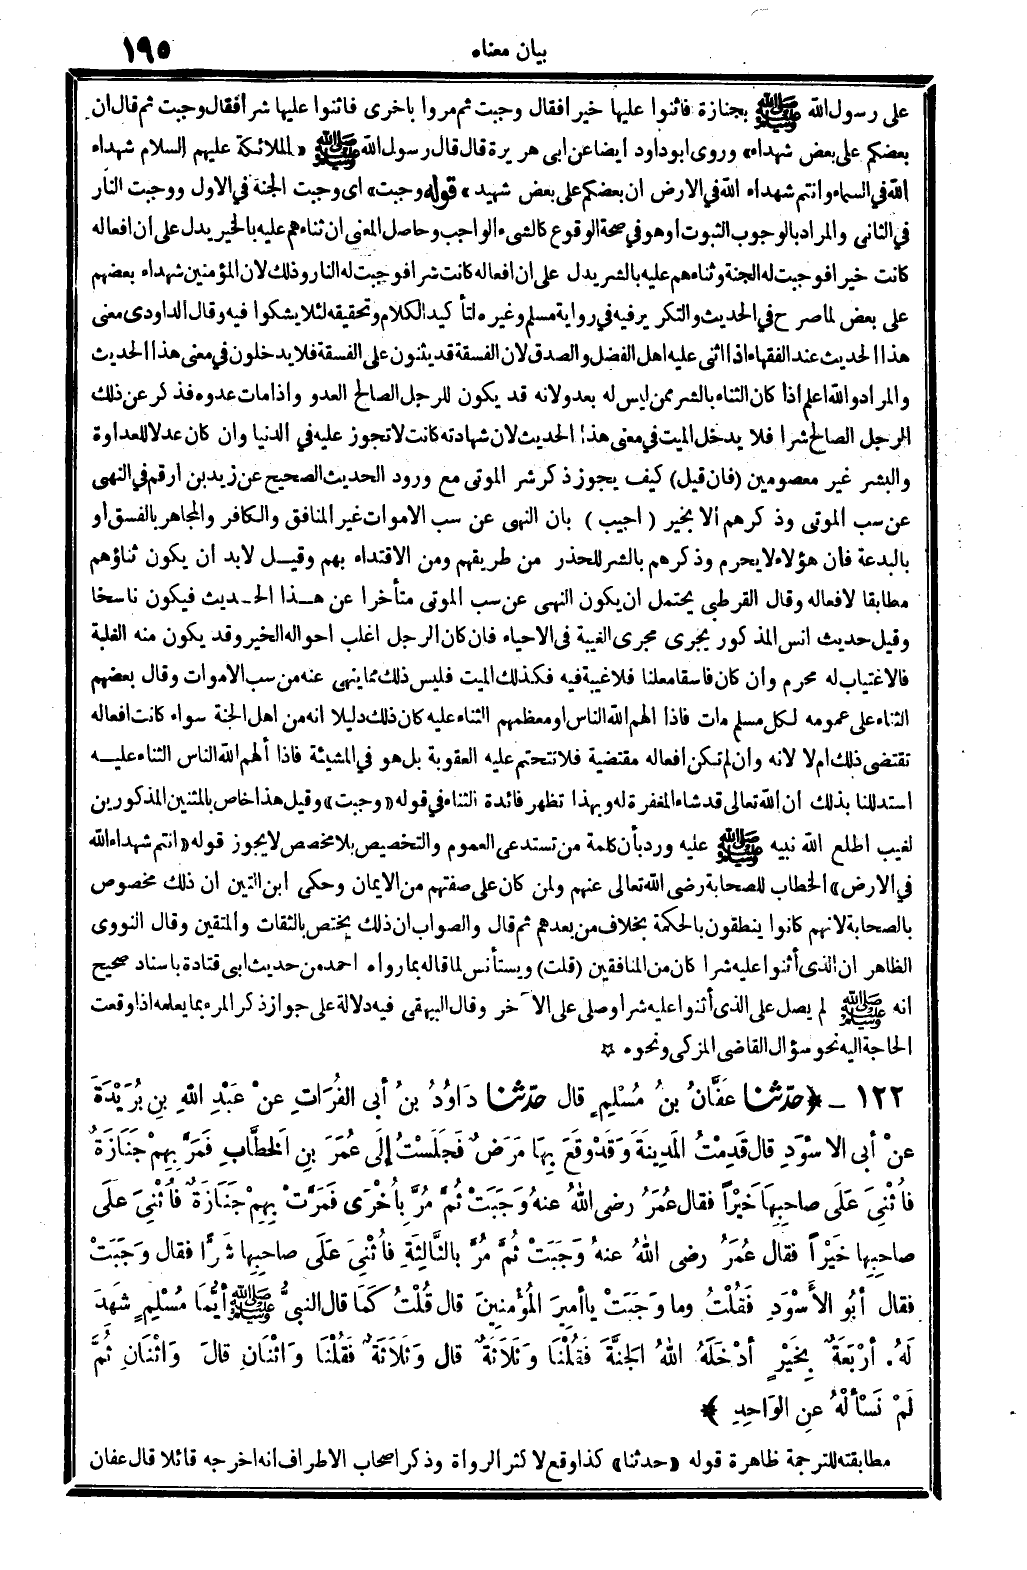 بيان معناه ١٩٥
على رسول الله ﷺ بجنازة فاثنوا عليها خيرا فقال وجبت ثم مروا باخرى فاثنوا عليها شرا فقال وجبت ثم قال ان
بعضكم على بعض شهداء» وروى ابو داود ايضا عن ابى هريرة قال قال رسول الله ﷺ «الملائكة عليهم السلام شهداء
الله فى السماء وانتم شهداء الله فى الارض ان بعضكم على بعض شهيد» قوله «وجبت» اى وجبت الجنة فى الاول ووجبت النار
فى الثانى والمراد بالوجوب الثبوت او هو فى صحة الوقوع كالشىء الواجب وحاصل المعنى ان ثناءهم عليه بالخير يدل على ان افعاله
كانت خيرا فوجبت له الجنة وثناءهم عليه بالشر يدل على ان افعاله كانت شرا فوجبت له النار وذلك لان المؤمنين شهداء بعضهم
على بعض لما صرح فى الحديث والتكرير فيه فى رواية مسلم وغيره لتأكيد الكلام وتحقيقه لئلا يشكوا فيه وقال الداودى معنى
هذا الحديث عند الفقهاء اذا اثنى عليه اهل الفضل والصدق لان الفسقة قد يثنون على الفسقة فلا يدخلون فى معنى هذا الحديث
والمراد والله اعلم اذا كان الثناء بالشر ممن ليس له بعدو لانه قد يكون للرجل الصالح العدو واذا مات عدوه فذكر عن ذلك
الرجل الصالح شرا فلا يدخل الميت فى معنى هذا الحديث لان شهادته كانت لا تجوز عليه فى الدنيا وان كان عدلا للعداوة
والبشر غير معصومين (فان قيل) كيف يجوز ذكر شر الموتى مع ورود الحديث الصحيح عن زيد بن ارقم فى النهى
عن سب الموتى وذكرهم الا بخير (اجيب) بان النهى عن سب الاموات غير المنافق والكافر والمجاهر بالفسق او
بالبدعة فان هؤلاء لا يحرم وذكرهم بالشر للحذر من طريقهم ومن الاقتداء بهم وقيل لابد ان يكون ثناؤهم
مطابقا لافعاله وقال القرطبى يحتمل ان يكون النهى عن سب الموتى متأخرا عن هذا الحديث فيكون ناسخا
وقيل حديث انس المذكور يجرى مجرى الغيبة فى الاحياء فان كان الرجل اغلب احواله الخير وقد يكون منه الفلتة
فالاغتياب له محرم وان كان فاسقا معلنا فلا غيبة فيه فكذلك الميت فليس ذلك مما ينهى عنه من سب الاموات وقال بعضهم
الثناء على عمومه لكل مسلم مات فاذا الهم الله الناس او معظمهم الثناء عليه كان ذلك دليلا انه من اهل الجنة سواء كانت افعاله
تقتضى ذلك ام لا لانه وان لم تكن افعاله مقتضية فلا تتحتم عليه العقوبة بل هو فى المشيئة فاذا ألهم الله الناس الثناء عليه
استدللنا بذلك ان الله تعالى قد شاء المغفرة له وبهذا تظهر فائدة الثناء فى قوله «وجبت» وقيل هذا خاص بالمثنين المذكورين
لغيب اطلع الله نبيه ﷺ عليه ورد بأن كلمة من تستدعى العموم والتخصيص بلا مخصص لا يجوز قوله «انتم شهداء الله
فى الارض» الخطاب للصحابة رضى الله تعالى عنهم ولمن كان على صفتهم من الايمان وحكى ابن التين ان ذلك مخصوص
بالصحابة لانهم كانوا ينطقون بالحكمة بخلاف من بعدهم ثم قال والصواب ان ذلك يختص بالثقات والمتقين وقال النووى
الظاهر ان الذى أثنوا عليه شرا كان من المنافقين (قلت) ويستأنس لما قاله بما رواه احمد من حديث ابى قتادة باسناد صحيح
انه ﷺ لم يصل على الذى أثنوا عليه شرا وصلى على الآخر وقال البيهقى فيه دلالة على جواز ذكر المرء بما يعلمه اذا وقعت
الحاجة اليه نحو سؤال القاضى المزكى ونحوه ☆
١٢٢ - ﴿حدّثنا عَفَّانُ بنُ مُسْلِمٍ قال حدّثنا دَاوُدُ بنُ أبى الفُرَاتِ عنْ عَبْدِ اللهِ بنِ بُرَيْدَةَ
عنْ أبى الاسْوَدِ قال قَدِمْتُ المَدِينَةَ وَقَدْ وقَعَ بِهَا مَرَضٌ فَجَلَسْتُ إلَى عُمَرَ بنِ الخَطَّابِ فَمَرَّتْ بِهِمْ جَنَازَةٌ
فأُثْنِىَ عَلَى صاحِبِهَا خَيْراً فقال عُمَرُ رضى اللهُ عنهُ وجَبَتْ ثُمَّ مُرَّ بِأُخْرَى فَمَرَّتْ بِهِمْ جَنَازَةٌ فأُثْنِىَ عَلَى
صاحِبِهَا خَيْراً فقال عُمَرُ رضى اللهُ عنهُ وجَبَتْ ثُمَّ مُرَّ بالثَّالِثَةِ فأُثْنِىَ عَلَى صاحِبِهَا شَرًّا فقال وَجَبَتْ
فقال أبُو الأَسْوَدِ فَقُلْتُ وما وجَبَتْ ياأمِيرَ المُؤْمِنِينَ قال قُلْتُ كَمَا قال النبىُّ ﷺ أيُّمَا مُسْلِمٍ شَهِدَ
لَهُ أرْبَعَةٌ بِخَيْرٍ أدْخَلَهُ اللهُ الجَنَّةَ فَقُلْنَا وَثَلاَثَةٌ قال وَثَلاَثَةٌ فَقُلْنَا وَاثْنَانِ قالَ وَاثْنَانِ ثُمَّ
لَمْ نَسْألْهُ عنِ الوَاحِدِ﴾
مطابقته للترجمة ظاهرة قوله «حدثنا» كذا وقع لاكثر الرواة وذكر اصحاب الاطراف انه اخرجه قائلا قال عفان